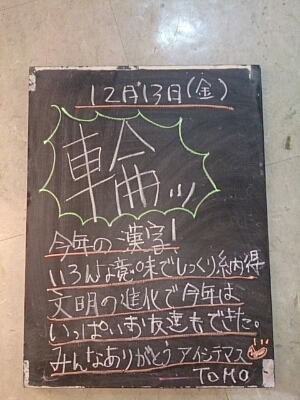 12月13日(金)
輪ッ
今年の漢字!
いろんな意味でしっくり納得
文明の進化で今年は
いっぱいお友達もできた。
みんなありがとうアイシテマス
TOMO